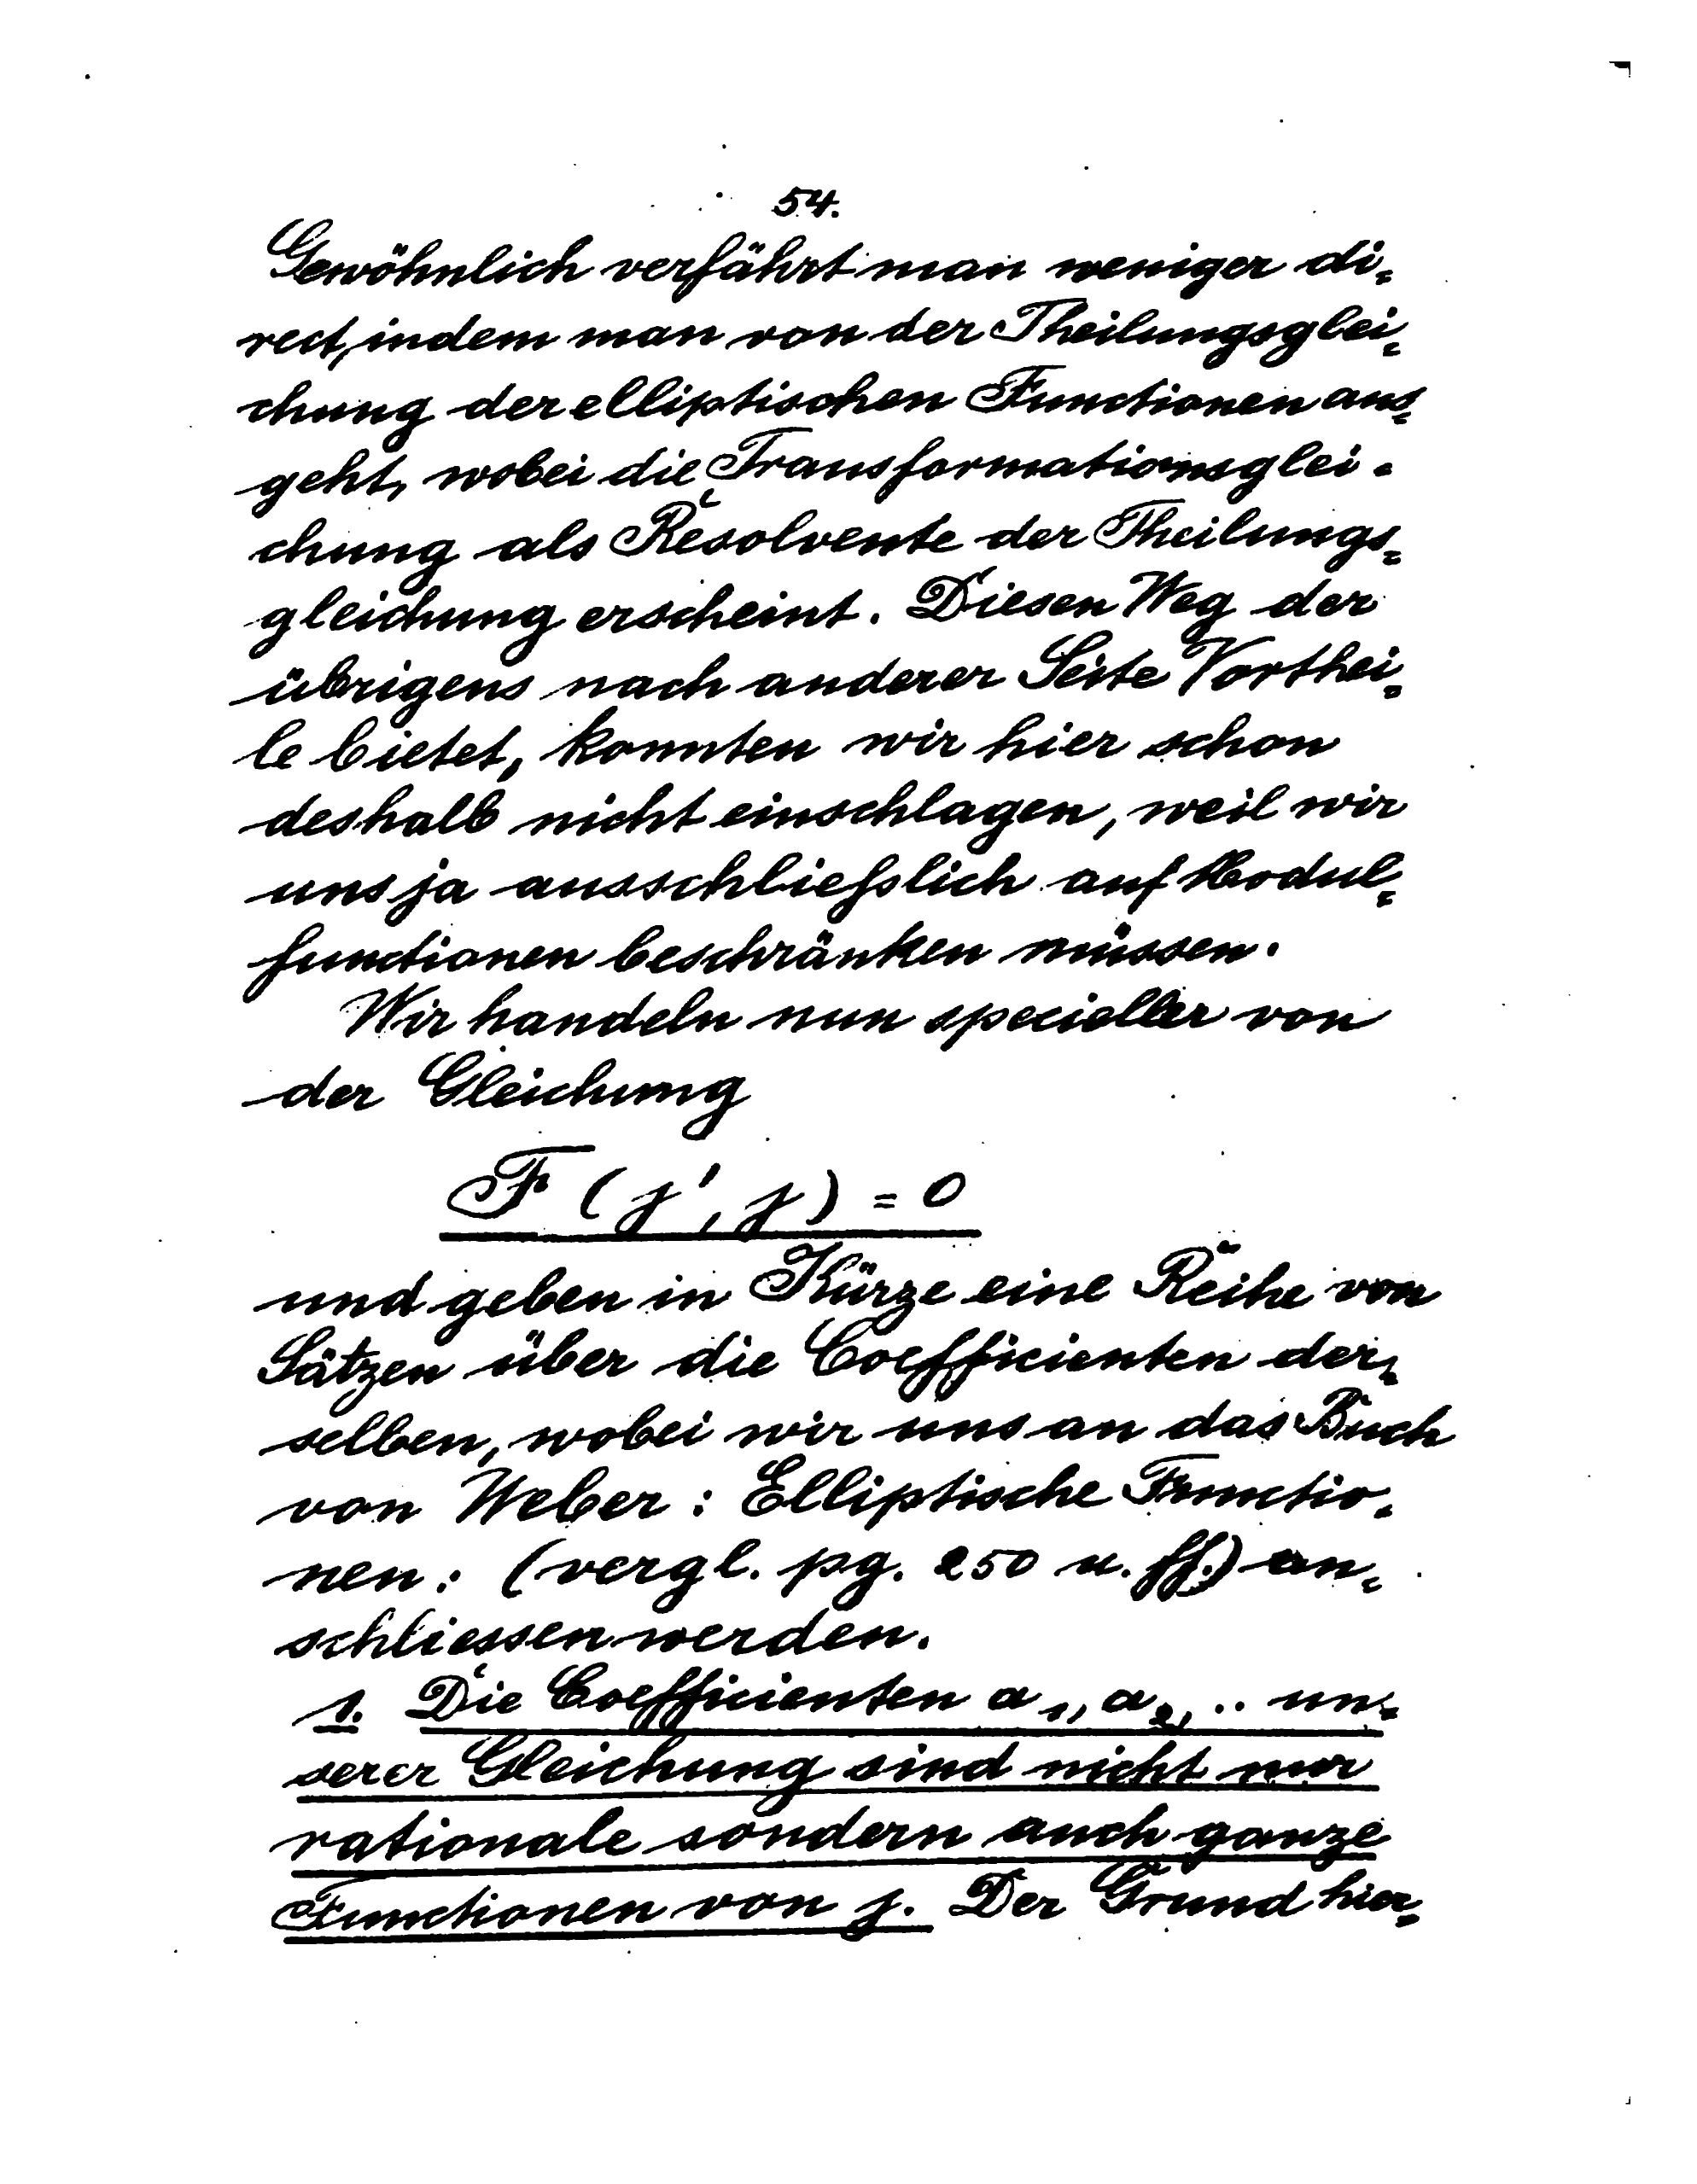 54.
Gewöhnlich verfährt man weniger di-
rect, indem man von der Theilungsglei-
chung der elliptischen Functionen aus-
geht, wobei die Transformationsglei-
chung als Resolvente der Theilungs-
gleichung erscheint. Diesen Weg der
übrigens nach anderer Seite Vorthei-
le bietet, konnten wir hier schon
deshalb nicht einschlagen, weil wir
uns ja ausschliesslich auf Modul-
functionen beschränken müssen.
Wir handeln nun specieller von
der Gleichung
F (j', j) = 0
und geben in Kürze eine Reihe von
Sätzen über die Coefficienten der-
selben, wobei wir uns an das Buch
von Weber: Elliptische Functio-
nen: (vergl. pg. 250 u. ff.) an-
schliessen werden.
1. Die Coefficienten a₁, a₂, .. un-
serer Gleichung sind nicht nur
rationale sondern auch ganze
Functionen von j. Der Grund hier-